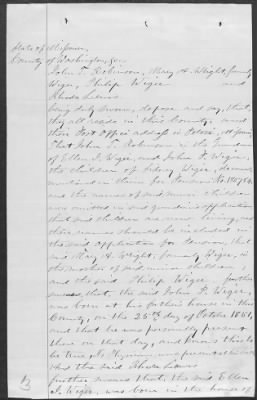 State of Missouri,
County of Washington, ss.
John T. Robinson, Mary A. Wright, formerly
Wiger, Philip Wiger and
Rhoda Lewis
being duly sworn, depose and say, that,
they all reside in this County, and
their Post Office address is Potosi, Missouri
That John T. Robinson is the Guardian
of Ellen I. Wiger, and John F. Wiger,
the children of Wiger, deceased
mentioned in claim for Pension No.
and the names of said minor children
were omitted in said guardian's application
that said children are now living, and
their names should be included in
the said application for pension, that
said Mary A. Wright, formerly Wiger, is
the mother of said minor children
and the said Philip Wiger further
swears, that, the said John F. Wiger,
was born at his father's house in this
County, on the 25th day of October 1861,
and that he was personally present
there on that day, and knows this to
be true, No Physician was present
And the said Rhoda Lewis
further swears that, the said Ellen
I. Wiger, was born in the house of